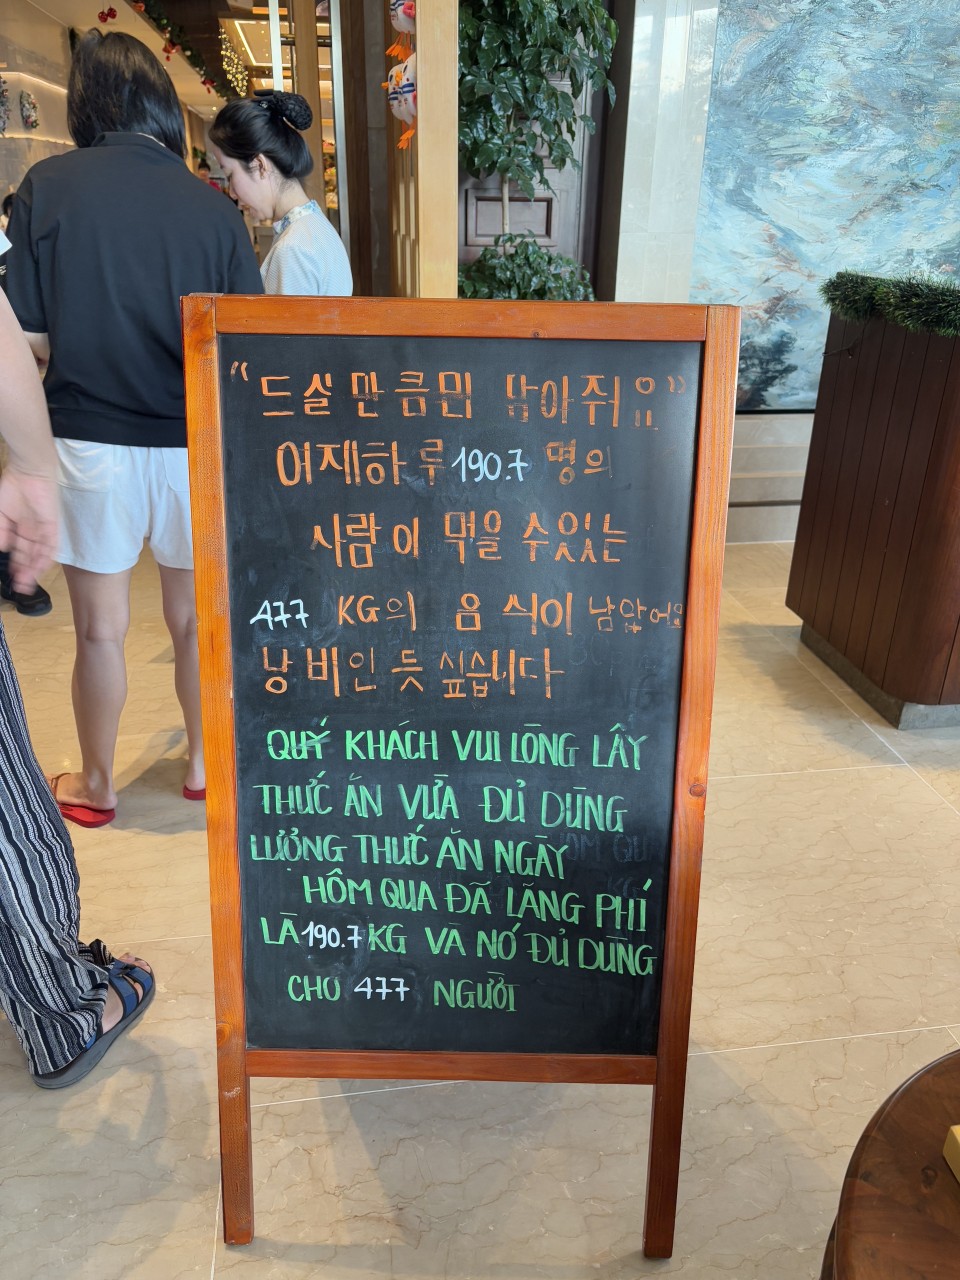 “드실 만큼만 담아줘요”
어제하루 190.7 명의
사람이 먹을 수있는
477 KG의 음식이 남았어요
낭비인 듯 싶습니다
QUÝ KHÁCH VUI LÒNG LẤY
THỨC ĂN VỪA ĐỦ DÙNG
LƯỢNG THỨC ĂN NGÀY
HÔM QUA ĐÃ LÃNG PHÍ
LÀ 190.7 KG VÀ NÓ ĐỦ DÙNG
CHO 477 NGƯỜI